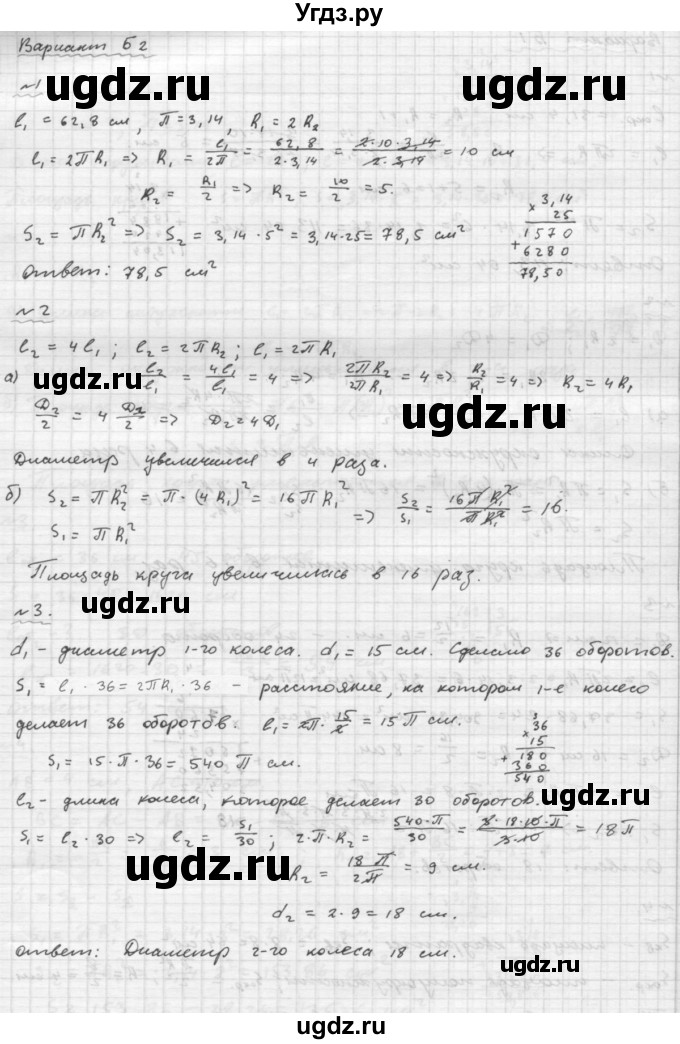 Угдз.ру
Вариант Б2
№1
l₁ = 62,8 см, π = 3,14, R₁ = 2R₂
l₁ = 2πR₁ => R₁ = l₁/2π = 62,8/2·3,14 = 2·10·3,14/2·3,14 = 10 см
R₂ = R₁/2 => R₂ = 10/2 = 5.
S₂ = πR₂² => S₂ = 3,14·5² = 3,14·25 = 78,5 см²
× 3,14
25
1570
+ 6280
78,50
ответ: 78,5 см²
№2
l₂ = 4l₁; l₂ = 2πR₂; l₁ = 2πR₁
а) l₂/l₁ = 4l₁/l₁ = 4 => 2πR₂/2πR₁ = 4 => R₂/R₁ = 4 => R₂ = 4R₁
D₂/2 = 4 D₁/2 => D₂ = 4D₁
Диаметр увеличился в 4 раза.
б) S₂ = πR₂² = π·(4R₁)² = 16πR₁²
S₁ = πR₁²
=> S₂/S₁ = 16πR₁²/πR₁² = 16.
Площадь круга увеличилась в 16 раз.
№3.
d₁ - диаметр 1-го колеса. d₁ = 15 см. Сделало 36 оборотов.
S₁ = l₁·36 = 2πR₁·36 - расстояние, на котором 1-е колесо
делает 36 оборотов. l₁ = 2π·15/2 = 15π см.
S₁ = 15·π·36 = 540π см.
3
36
× 15
+ 180
360
540
l₂ - длина колеса, которое делает 30 оборотов.
S₁ = l₂·30 => l₂ = S₁/30; 2·π·R₂ = 540·π/30 = 3·18·10·π/3·10 = 18π
R₂ = 18π/2π = 9 см.
d₂ = 2·9 = 18 см.
ответ: Диаметр 2-го колеса 18 см.
ugdz.ru
ugdz.ru
ugdz.ru
ugdz.ru
ugdz.ru
ugdz.ru
ugdz.ru
ugdz.ru
ugdz.ru
ugdz.ru